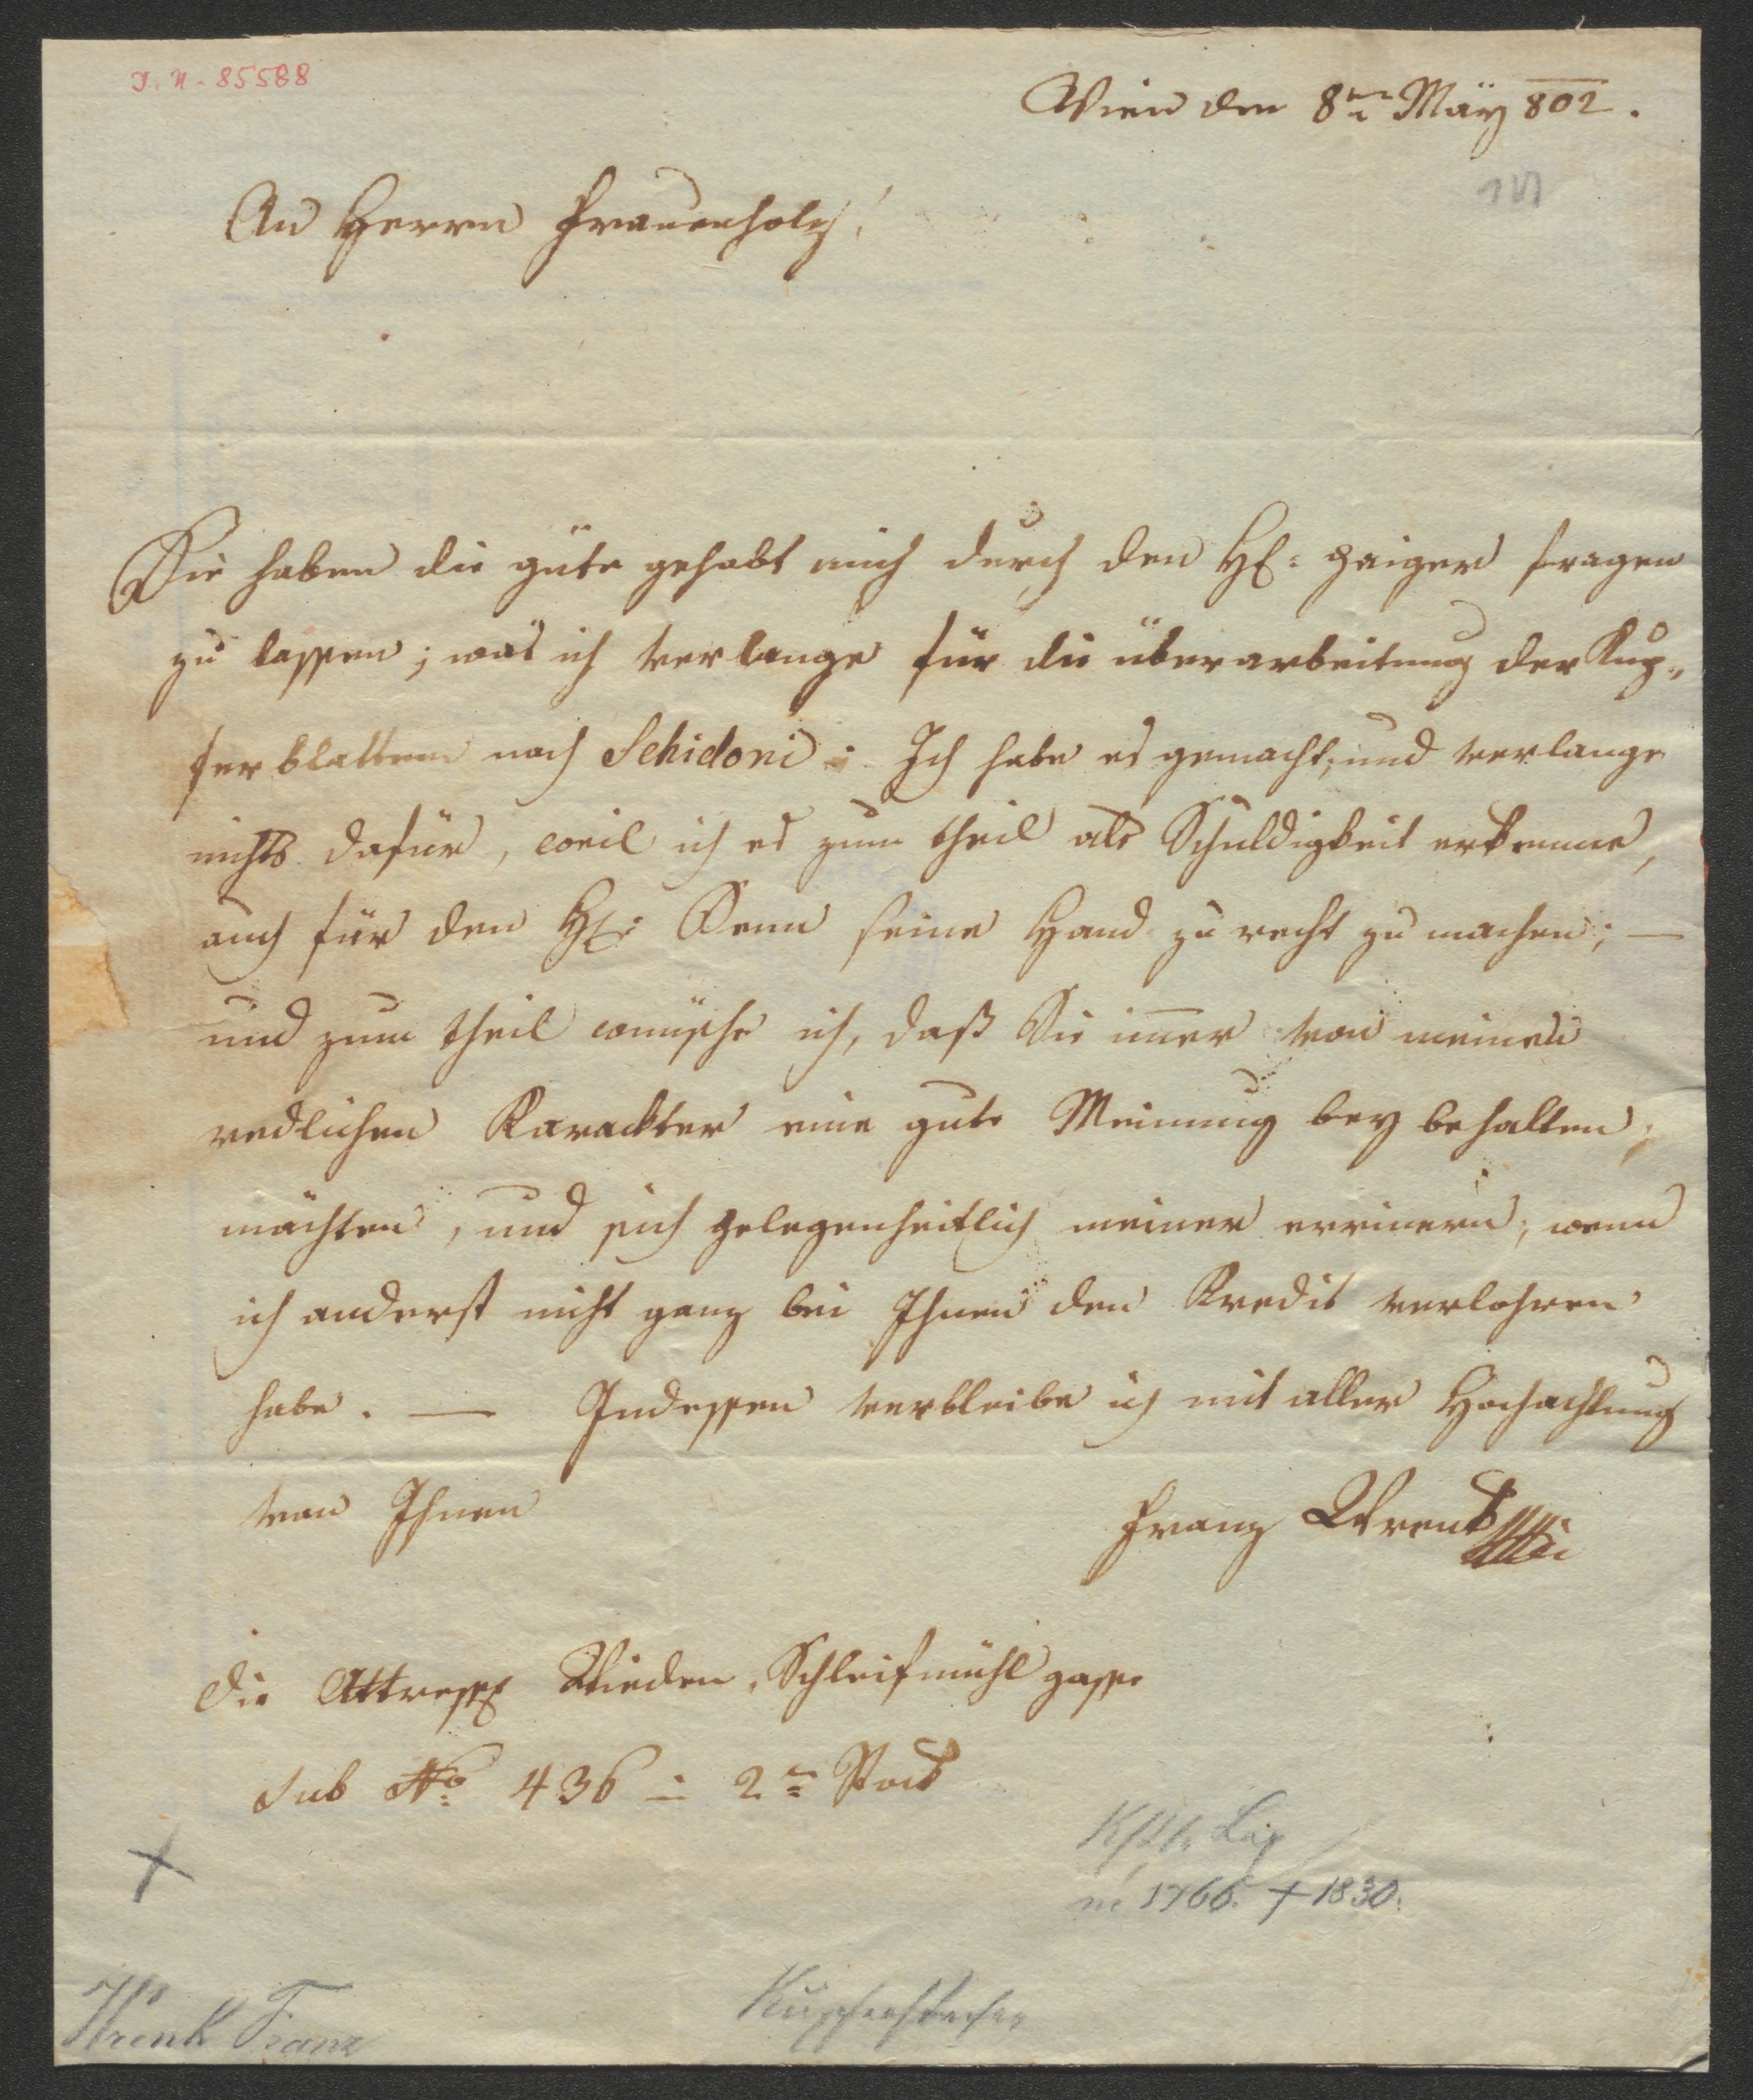 I. N. 85588
Wien den 8ten Mäÿ 802.
An Herrn Frauenholz!
Sie haben die güte gehabt mich durch den H: Gaiger fragen
zu lassen; was ich verlange für die überarbeitung der Kup„
ferblatten nach Schidoni: Ich habe es gemacht, und verlange
nichts dafür, weil ich es zum theil als Schuldigkeit erkenne,
auch für den H: Senn seine Hand zu recht zu machen; —
und zum theil wünsche ich, daß Sie im̄er von meinen
redlichen Karackter eine gute Meinung bey behalten;
mächten, und sich gelegenheitlich meiner errinern; wenn
ich anderst nicht ganz bei Ihnen den Kredit verlohren
habe. — Indessen verbleibe ich mit aller Hochachtung
von Ihnen
Franz Wrenk
Die Attresse Wieden, Schleifmühl gasse
Sub No: 436 in 2ten Stock
1766. † 1830.
Kupferstecher
Wrenk Franz